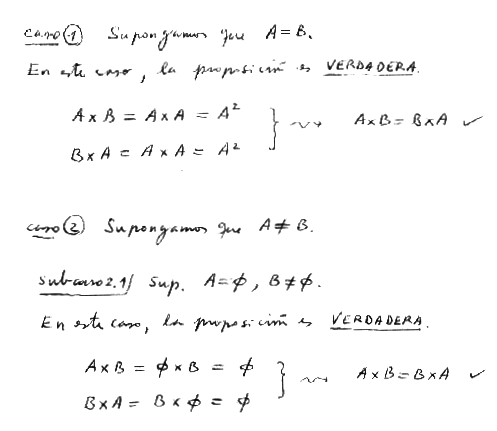 caso ① Supongamos que A = B.
En este caso, la proposición es VERDADERA.
A x B = A x A = A²
B x A = A x A = A²
} ⇝ A x B = B x A ✓
caso ② Supongamos que A ≠ B.
subcaso 2.1/ Sup. A = ϕ, B ≠ ϕ.
En este caso, la proposición es VERDADERA.
A x B = ϕ x B = ϕ
B x A = B x ϕ = ϕ
} ⇝ A x B = B x A ✓